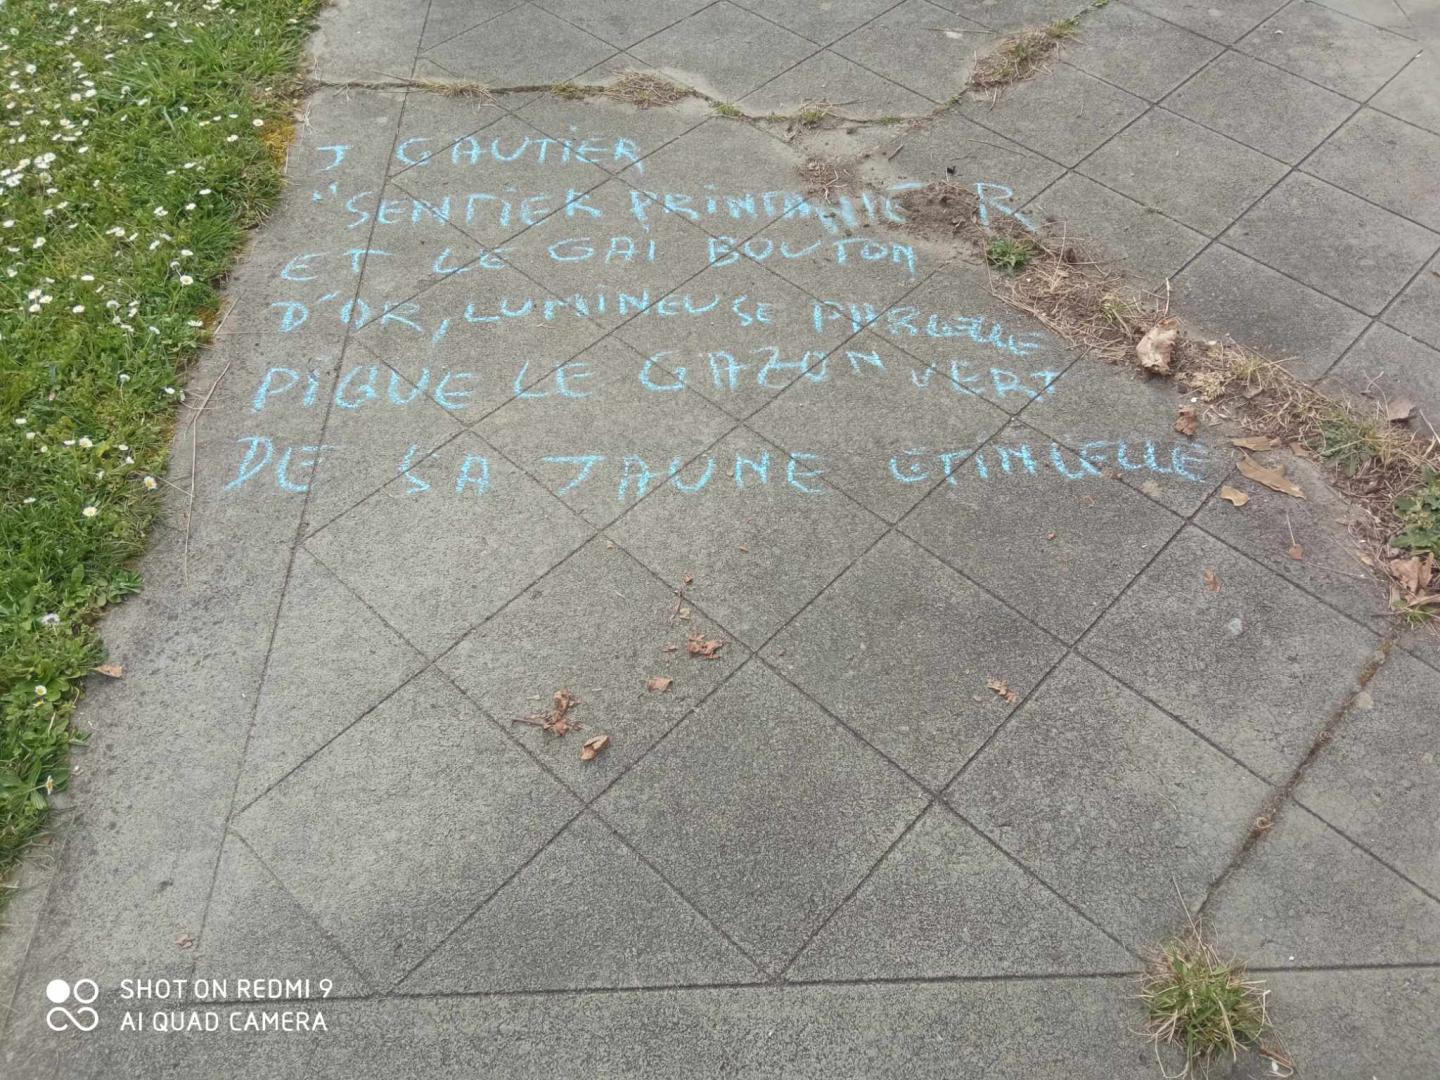 J GAUTIER
"SENTIER PRINTANIER
ET LE GAI BOUTON
D'OR, LUMINEUSE PARCELLE
PIQUE LE GAZON VERT
DE SA JAUNE ETINCELLE
SHOT ON REDMI 9
AI QUAD CAMERA